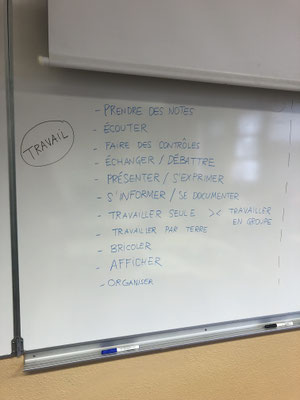 TRAVAIL
- PRENDRE DES NOTES
- ÉCOUTER
- FAIRE DES CONTRÔLES
- ÉCHANGER / DÉBATTRE
- PRÉSENTER / S'EXPRIMER
- S'INFORMER / SE DOCUMENTER
- TRAVAILLER SEUL·E >< TRAVAILLER
EN GROUPE
- TRAVAILLER PAR TERRE
- BRICOLER
- AFFICHER
- ORGANISER